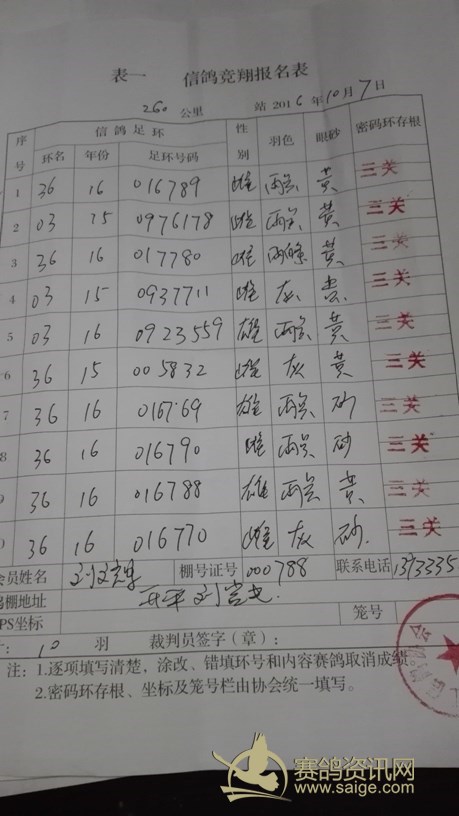 表一 信鸽竞翔报名表
260 公里 站 2016 年 10 月 7 日
序号 信鸽足环 性别 羽色 眼砂 密码环存根
环名 年份 足环号码
1 36 16 016789 雌 雨点 黄 三关
2 03 15 0976178 雌 雨点 黄 三关
3 36 16 017780 雌 黄 三关
4 03 15 0937711 雌 灰 黄 三关
5 03 16 0923559 雄 雨点 黄 三关
6 36 15 005832 雌 灰 黄 三关
7 36 16 016769 雄 雨点 砂 三关
8 36 16 016790 雌 雨点 砂 三关
36 16 016788 雄 雨点 黄 三关
36 16 016770 雌 灰 砂 三关
会员姓名 棚号证号 000788 联系电话 1373335
鸽棚地址
PS坐标 笼号
10 羽 裁判员签字（章）：
注：1.逐项填写清楚，涂改、错填环号和内容赛鸽取消成绩
2.密码环存根、坐标及笼号栏由协会统一填写。
赛鸽资讯网
www.saige.com